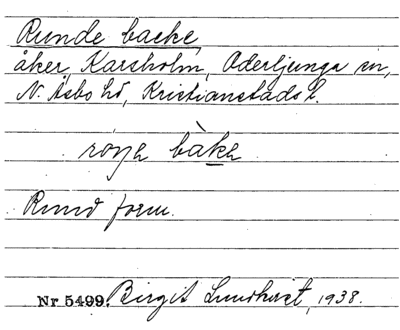 Runde backe,
åker, Karsholm, Oderljunga sn,
N. Åsbo hd, Kristianstads l.
bàkə
Rund form.
Nr 5499. Birgit Lundkvist, 1938.